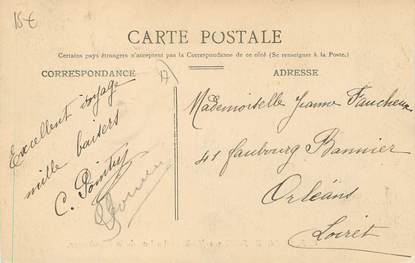 15€
CARTE POSTALE
Certains pays étrangers n'acceptent pas la Correspondance de ce côté (Se renseigner à la Poste.)
CORRESPONDANCE
ADRESSE
Excellent voyage
mille baisers
C.
Mademoiselle Jeanne Faucheux
41 faubourg Bannier
Orléans
Loiret